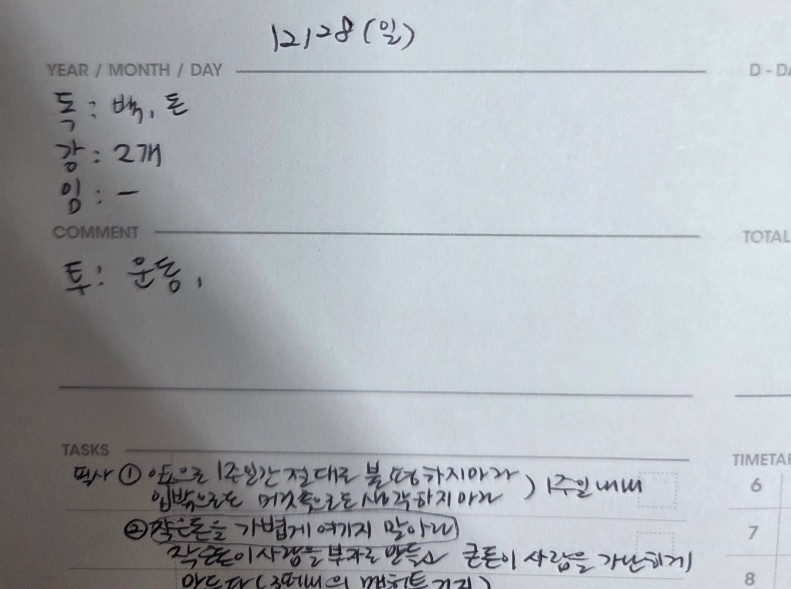 12/28 (일)
YEAR / MONTH / DAY
D - DA
독 : 백, 돈
강 : 2개
임 : -
COMMENT
TOTAL
투 : 운동,
TASKS
TIMETAB
필사 ① 앞으로 1주일간 절대로 불평하지마라
입밖으로도 머릿속으로도 생각하지마라 ) 1주일내내
6
② 작은돈을 가볍게 여기지 말아라
7
작은돈이 사람을 부자로 만들고 큰돈이 사람을 가난하게
8
만든다